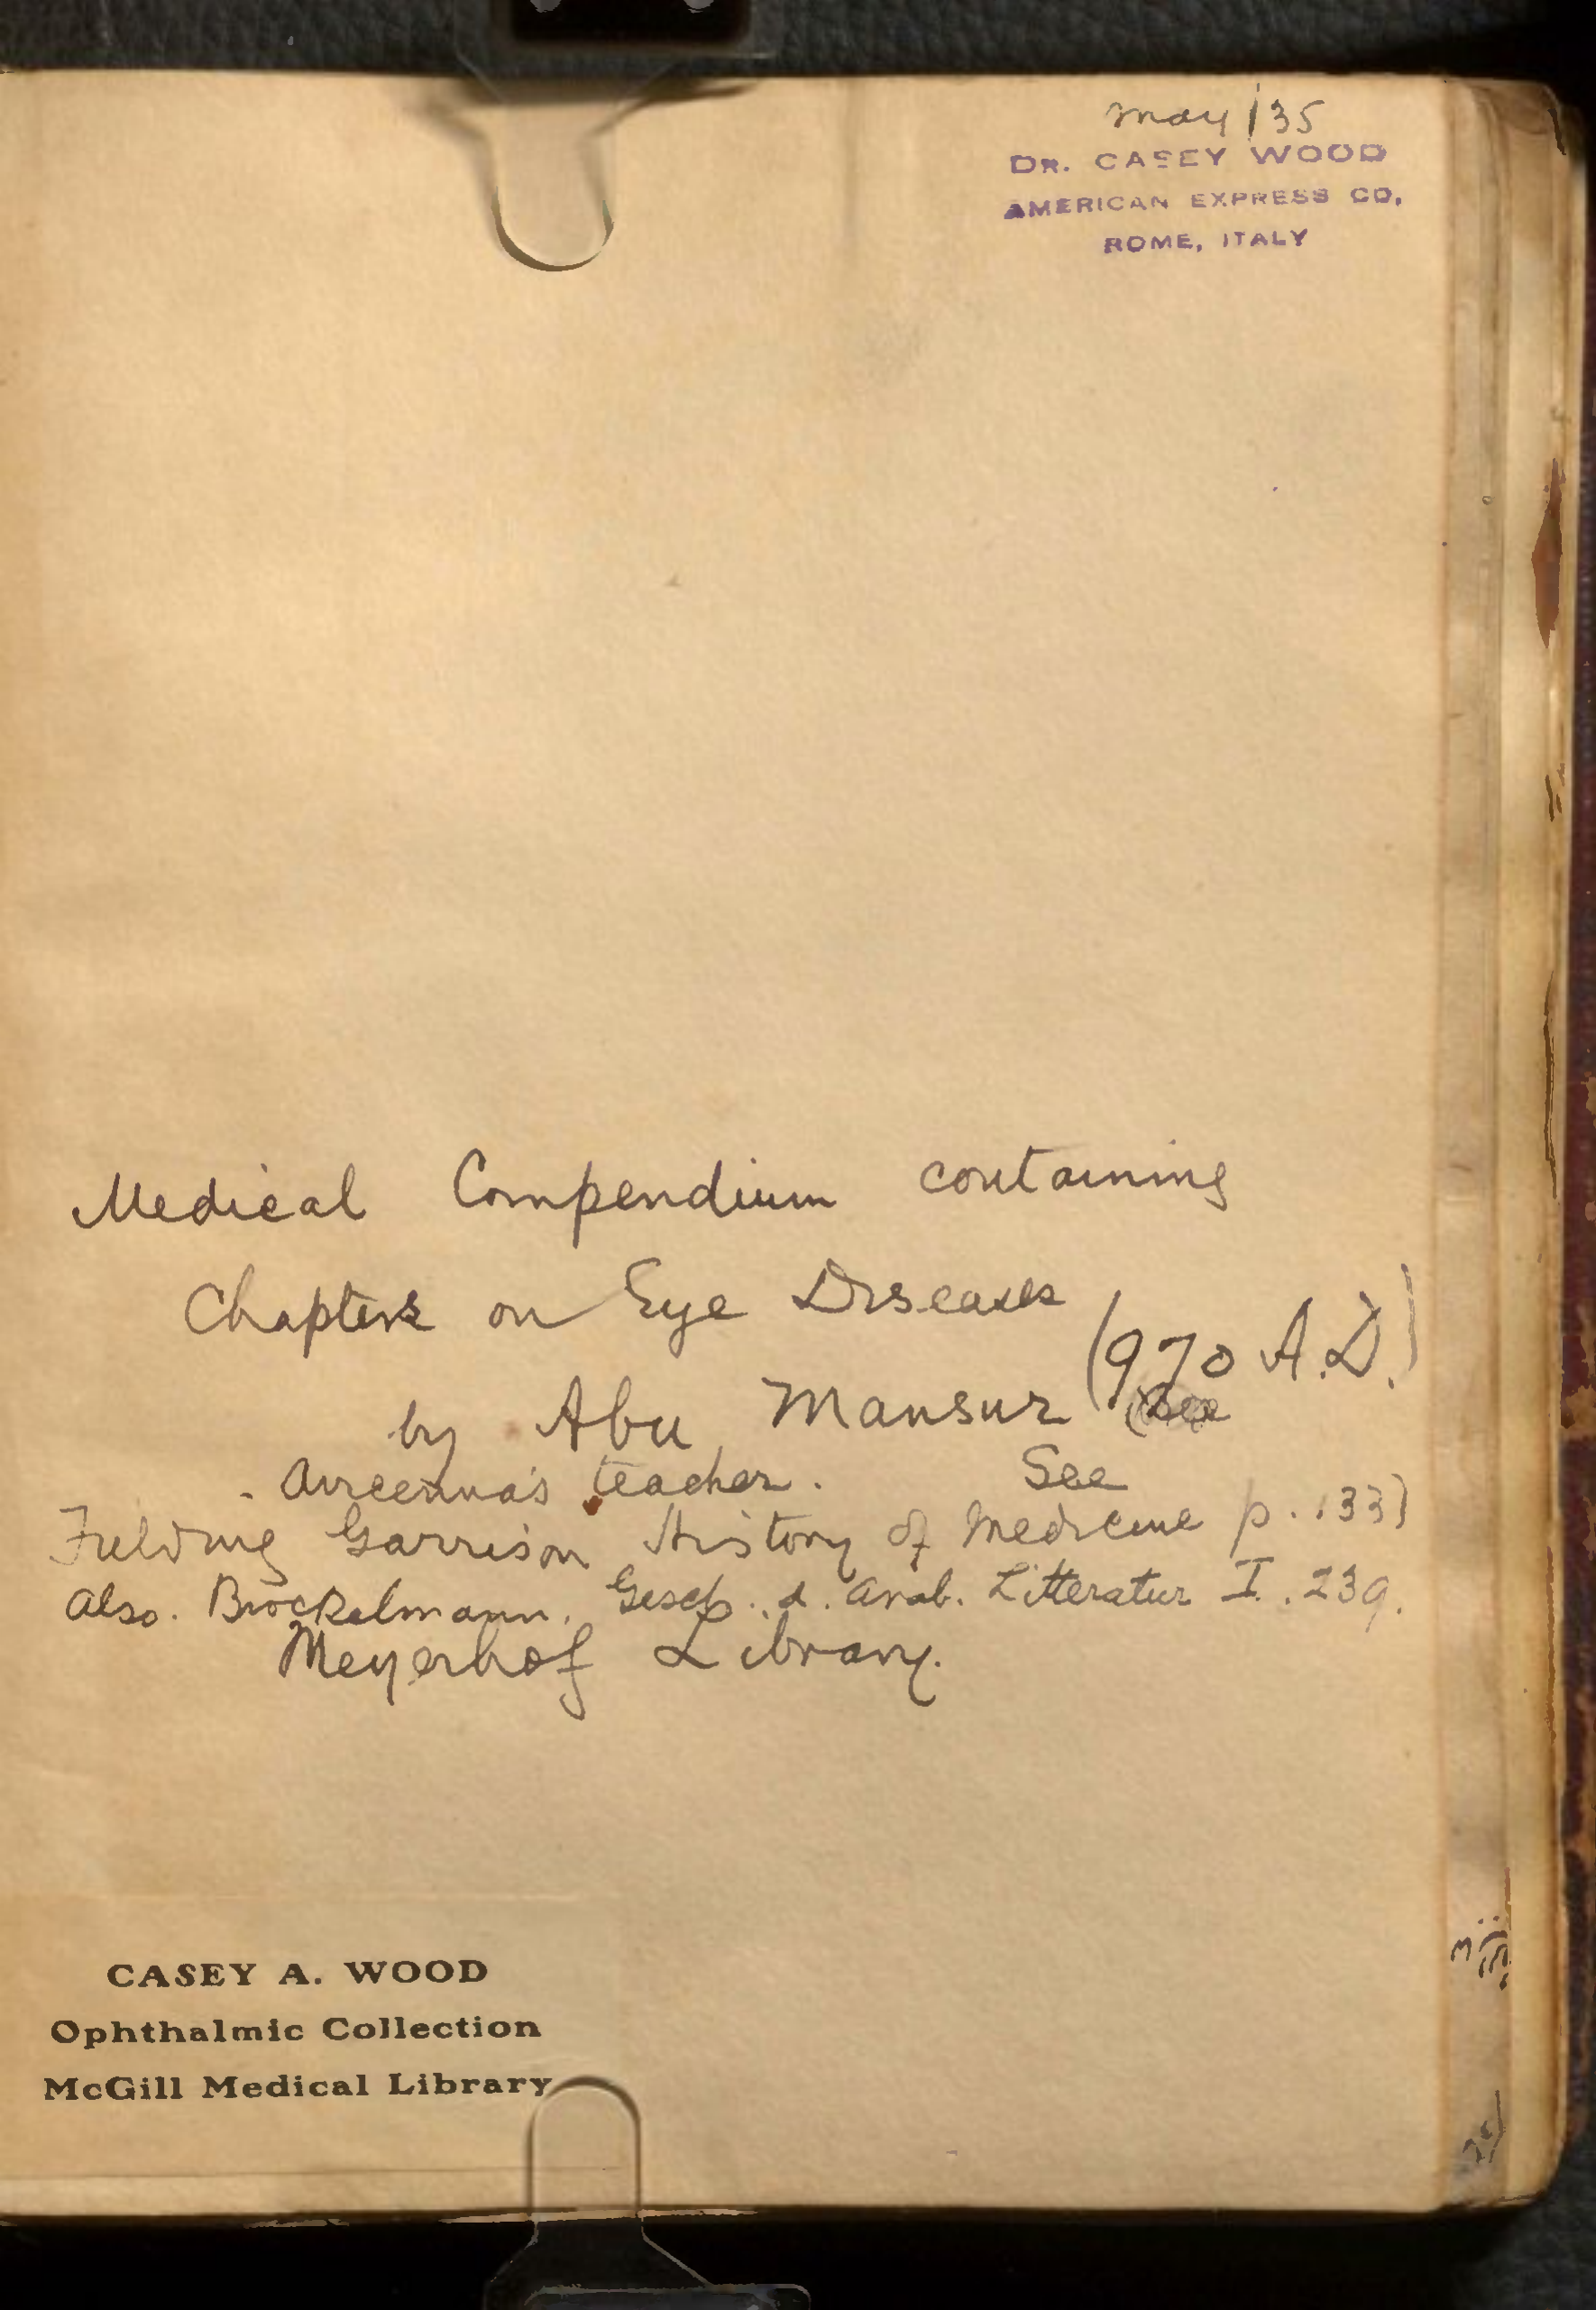 May /35
DR. CASEY WOOD
AMERICAN EXPRESS CO,
ROME, ITALY
Medical Compendium containing
Chapters on Eye Diseases
(970 A.D.)
by Abu Mansur (see
- Avicenna's teacher. See
Fielding Garrison History of Medicine p. 133)
Also. Brockelmann. Gesch. d. Arab. Litteratur I. 239.
Meyerhof Library.
CASEY A. WOOD
Ophthalmic Collection
McGill Medical Library